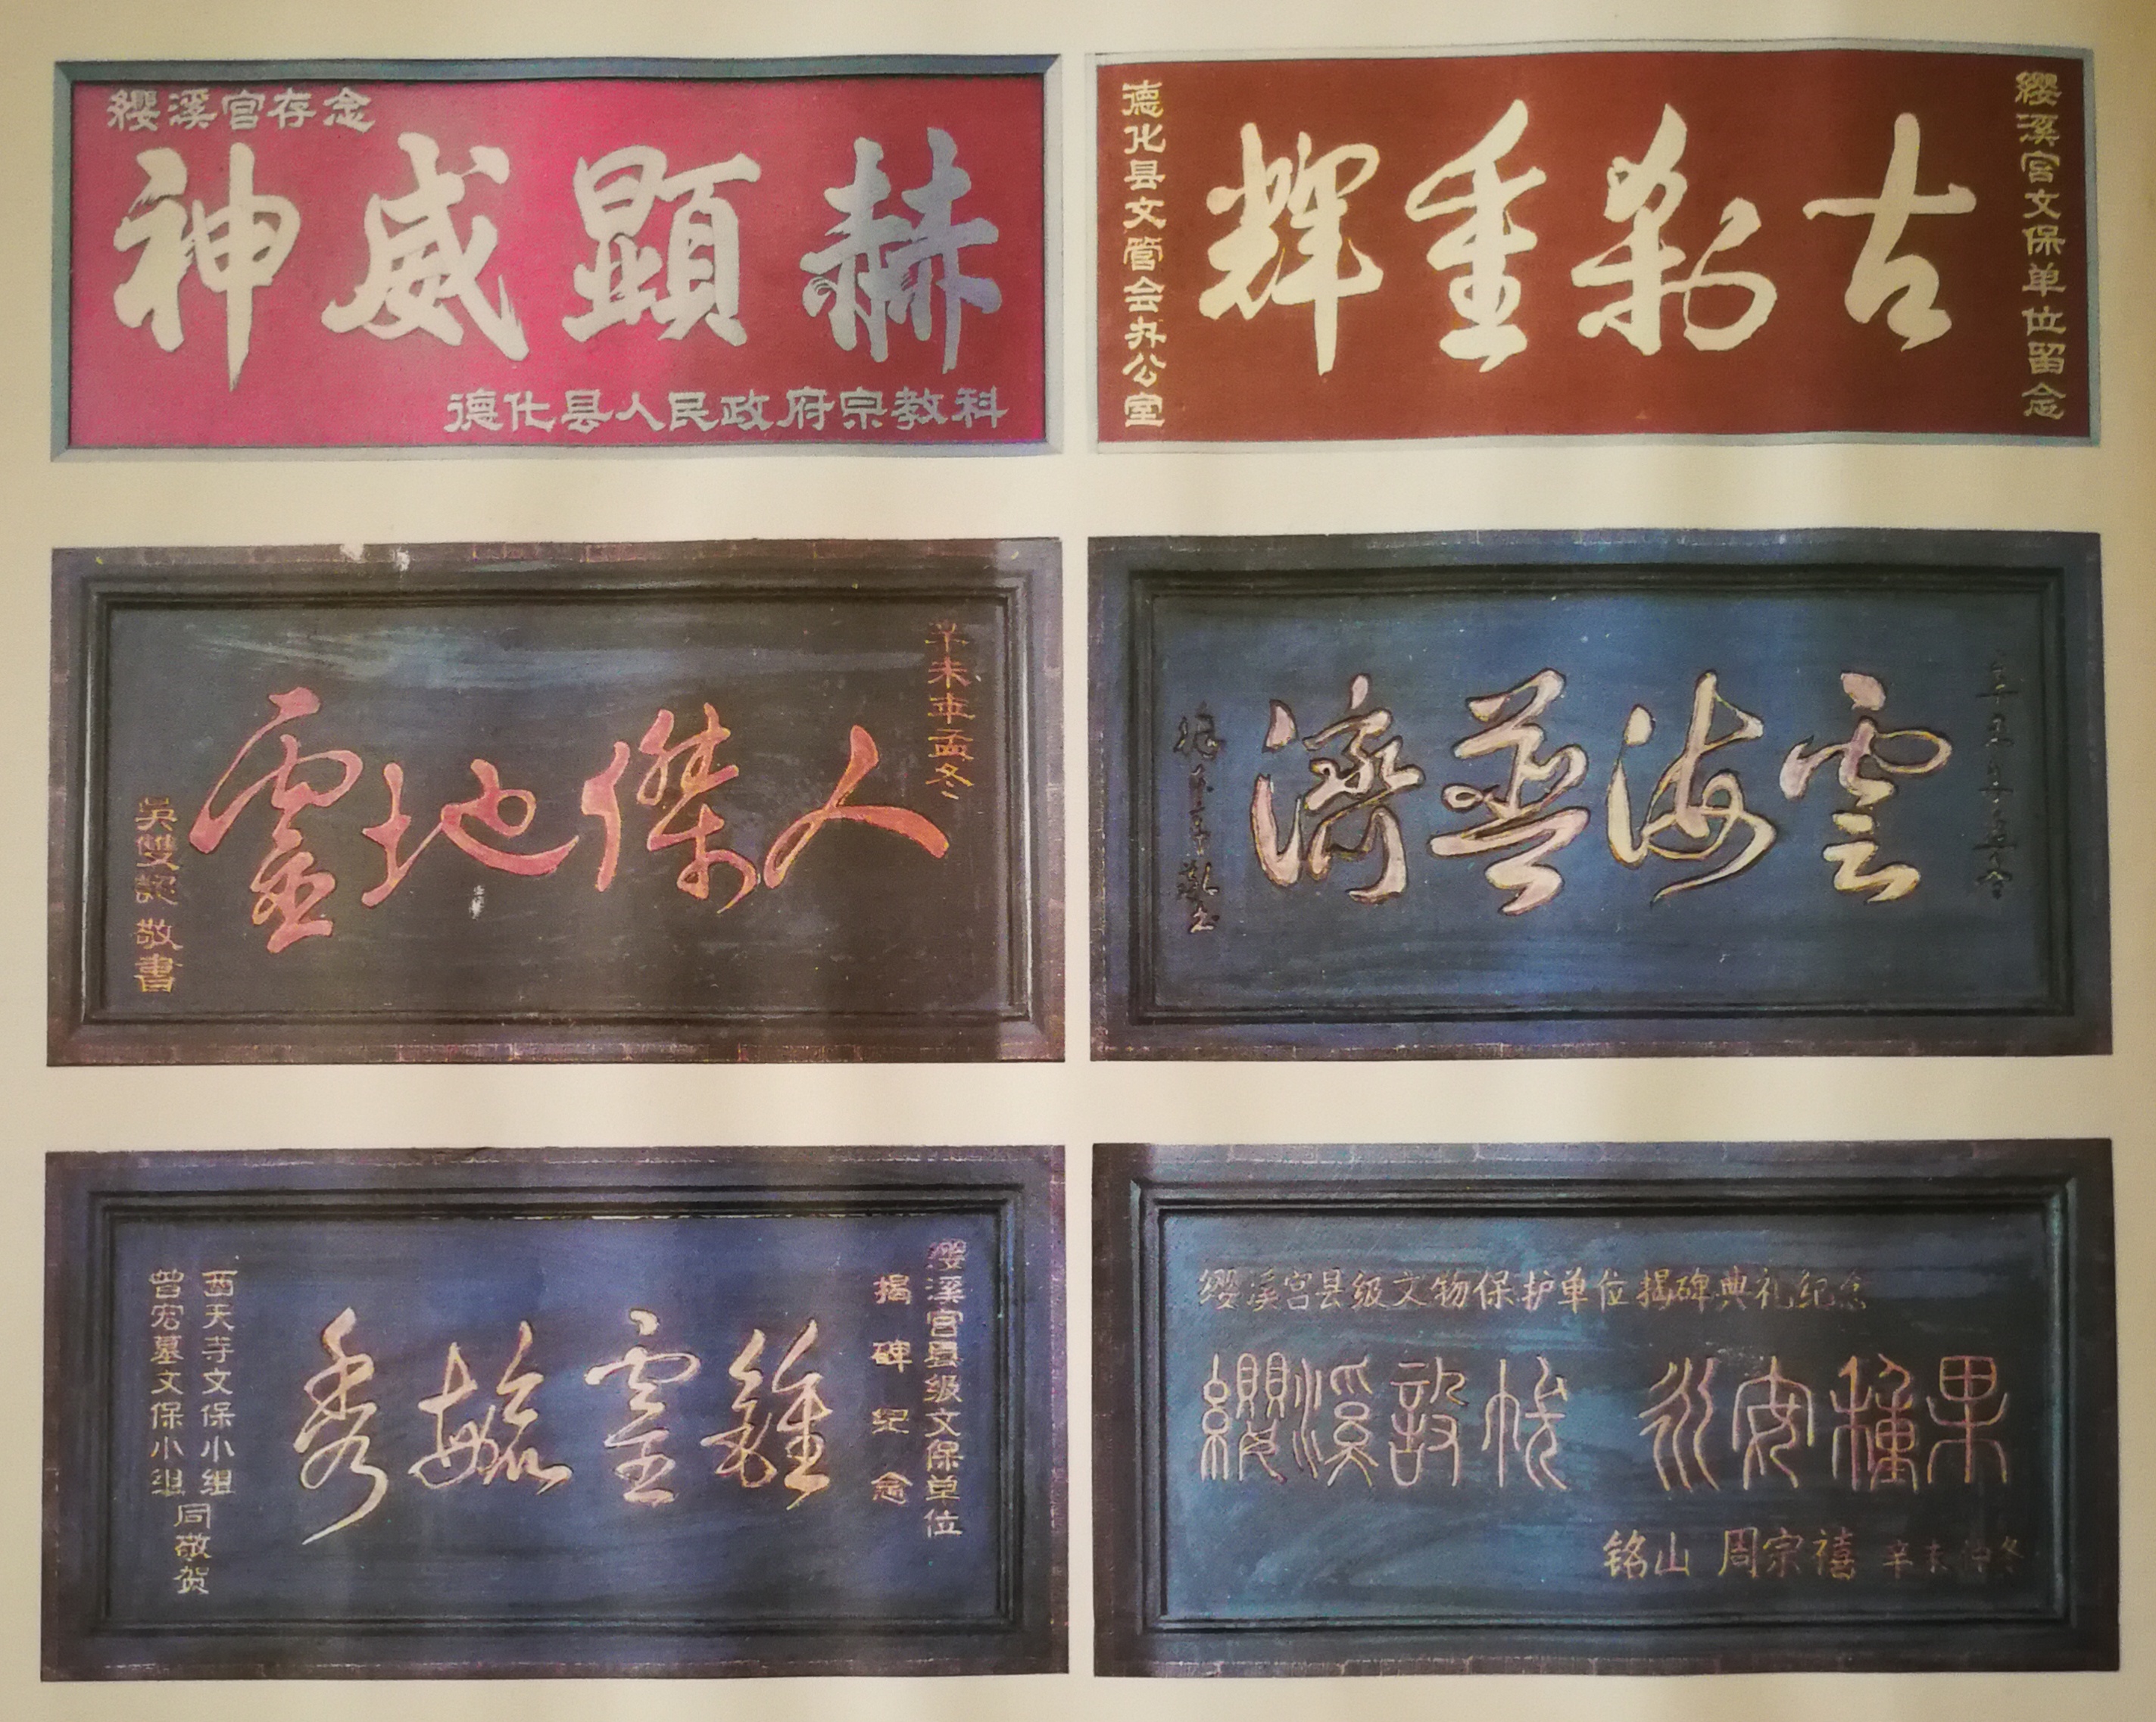 纓溪宫存念
神威顯赫
德化县人民政府宗教科
纓溪宫文保单位留念
古刹重輝
德化县文管会办公室
辛未年孟冬
人傑地靈
吳雙認敬書
雲海普濟
敬书
纓溪宫县级文保单位
揭碑纪念
鍾靈毓秀
西天寺文保小组
曾宏墓文保小组
同敬贺
纓溪宫县级文物保护单位揭碑典礼纪念
纓溪設帳 永安種果
铭山 周宗禧 辛未仲冬